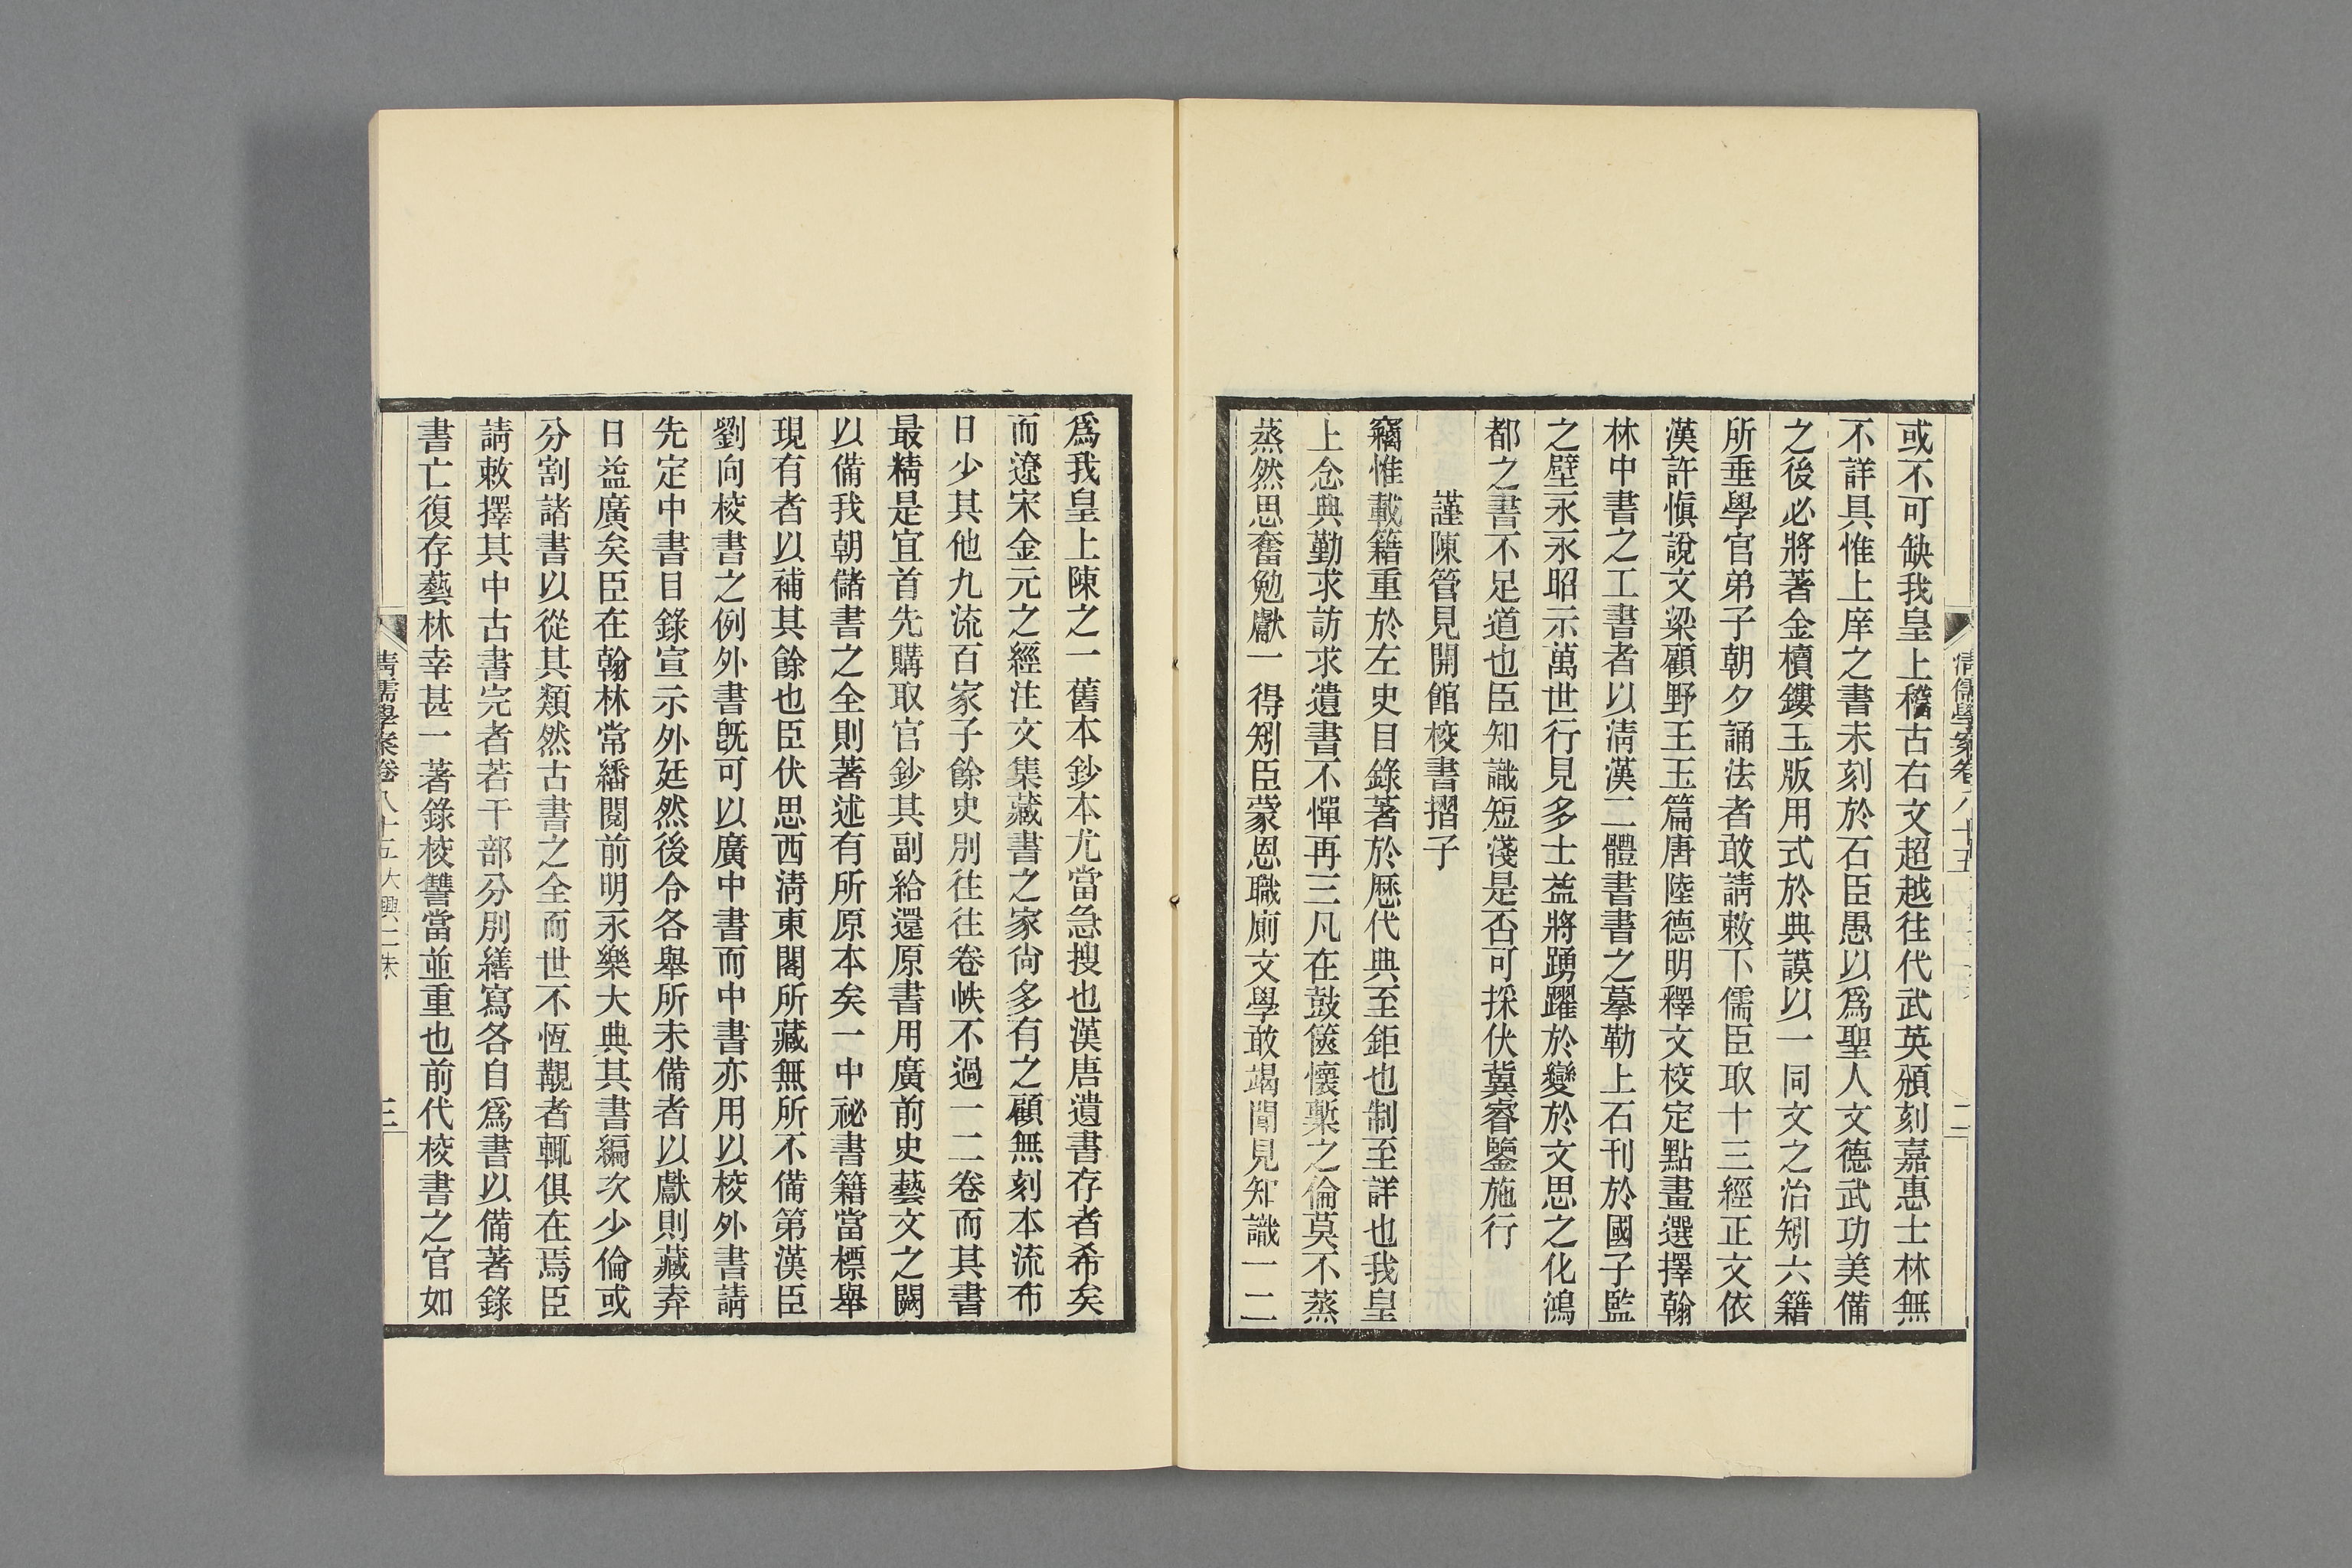 清儒學案卷八十五
二
或不可缺我皇上稽古右文超越往代武英頒刻嘉惠士林無
不詳具惟上庠之書未刻於石臣愚以爲聖人文德武功美備
之後必將著金櫝鏤玉版用式於典謨以一同文之治矧六籍
所垂學官弟子朝夕誦法者敢請敕下儒臣取十三經正文依
漢許愼說文梁顧野王玉篇唐陸德明釋文校定點畫選擇翰
林中書之工書者以淸漢二體書書之摹勒上石刊於國子監
之壁永永昭示萬世行見多士益將踴躍於變於文思之化鴻
都之書不足道也臣知識短淺是否可採伏冀睿鑒施行
謹陳管見開館校書摺子
竊惟載籍重於左史目錄著於歷代典至鉅也制至詳也我皇
上念典勤求訪求遺書不憚再三凡在鼓篋懷槧之倫莫不蒸
蒸然思奮勉獻一得矧臣蒙恩職廁文學敢竭聞見知識一二
爲我皇上陳之一舊本鈔本尤當急搜也漢唐遺書存者希矣
而遼宋金元之經注文集藏書之家尙多有之顧無刻本流布
日少其他九流百家子餘史別往往卷帙不過一二卷而其書
最精是宜首先購取官鈔其副給還原書用廣前史藝文之闕
以備我朝儲書之全則著述有所原本矣一中祕書籍當標舉
現有者以補其餘也臣伏思西淸東閣所藏無所不備第漢臣
劉向校書之例外書旣可以廣中書而中書亦用以校外書請
先定中書目錄宣示外廷然後令各舉所未備者以獻則藏弆
日益廣矣臣在翰林常繙閱前明永樂大典其書編次少倫或
分割諸書以從其類然古書之全而世不恆覯者輒俱在焉臣
請敕擇其中古書完者若干部分別繕寫各自爲書以備著錄
書亡復存藝林幸甚一著錄校讐當並重也前代校書之官如
清儒學案卷八十五 大興二朱
三